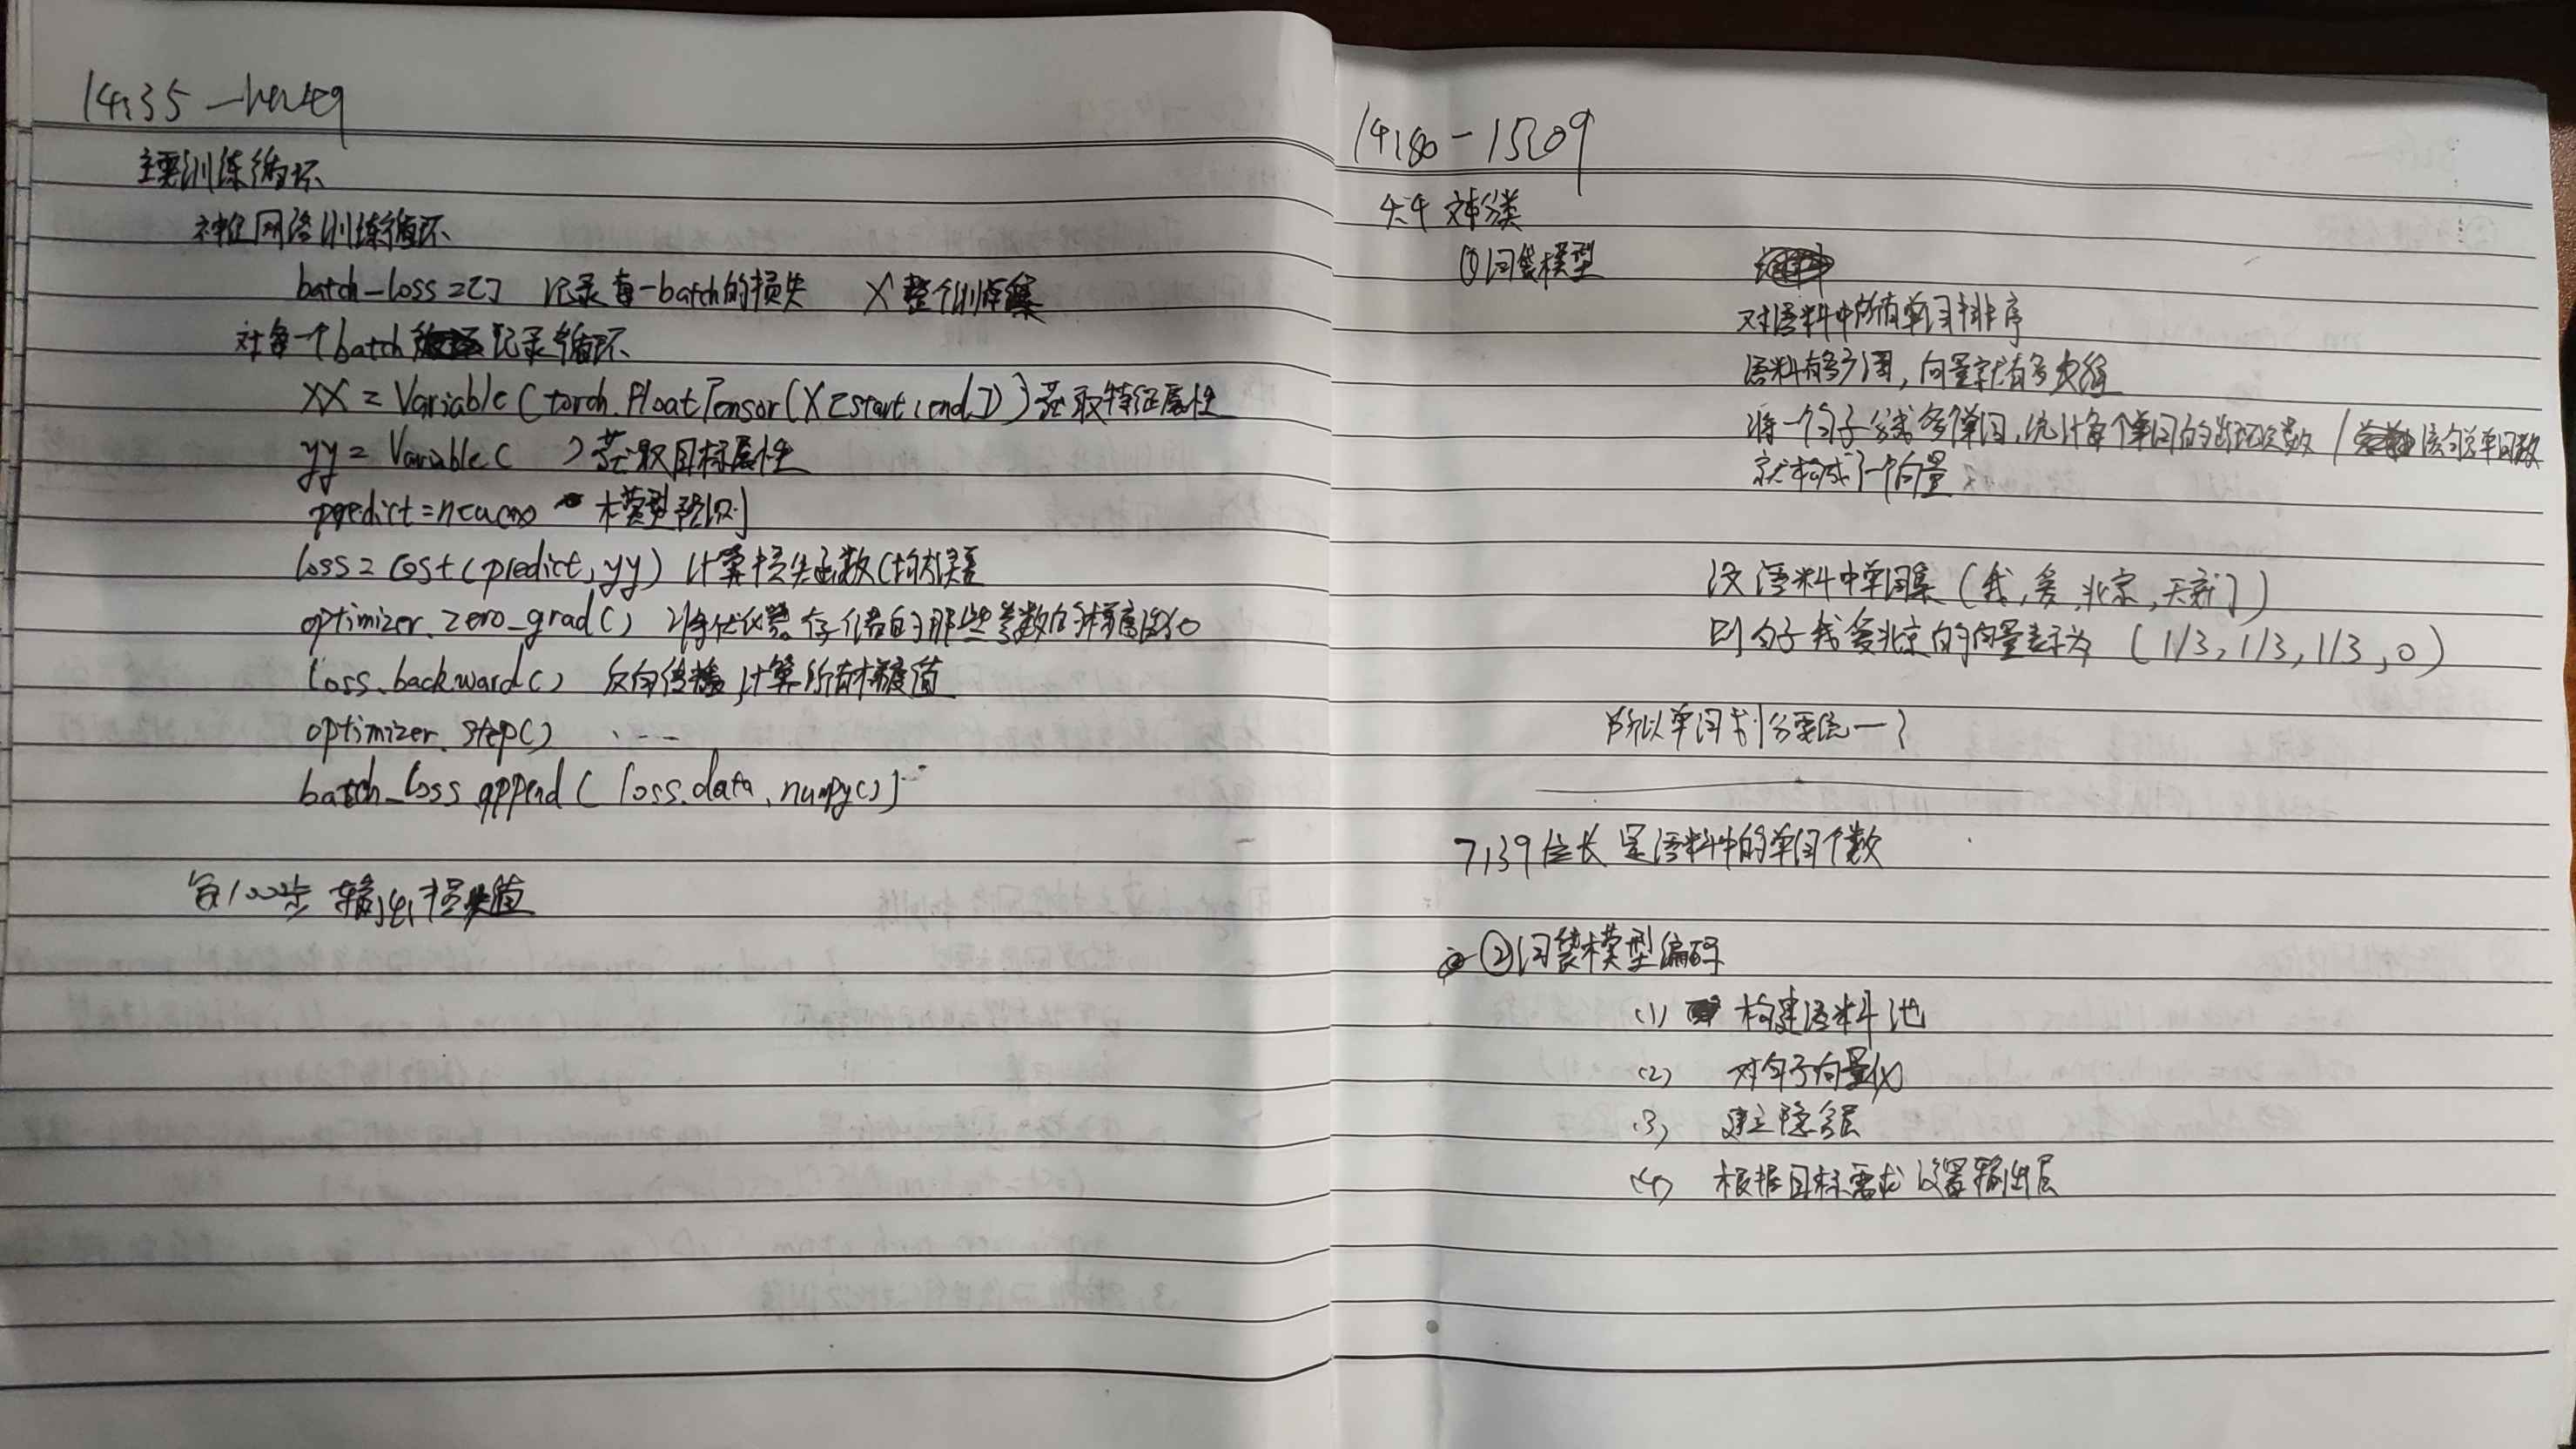 14:35 - 14:49
主要训练循环
神经网络训练循环
batch_loss = [] 记录每一batch的损失 X 整个训练集
对每一个batch 记录循环
xx = Variable(torch.FloatTensor(X[start:end])) 获取特征属性
yy = Variable( ) 获取目标属性
predict = neu(xx) 模型预测
loss = cost(predict, yy) 计算损失函数(均方误差
optimizer.zero_grad() 将优化器存储的那些参数的梯度设为0
loss.backward() 反向传播,计算所有梯度值
optimizer.step() ....
batch_loss.append(loss.data.numpy())
每100步 输出损失值
14:50 - 15:09
4.4 文本分类
①词袋模型
对语料中所有单词排序
语料有多少词,向量就有多少维
将一个句子分成多个单词,统计每个单词的出现次数 / 该句总单词数
就构成了一个向量
设语料中单词集(我,爱,北京,天安门)
则句子我爱北京的向量表示为 (1/3, 1/3, 1/3, 0)
所以单词划分要统一?
7139位长 是语料中的单词个数
②词袋模型编码
(1) 构建语料池
(2) 对句子向量化
(3) 建立隐含层
(4) 根据目标需求 设置输出层